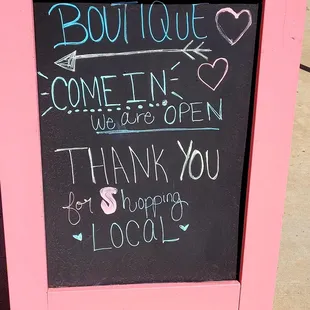 BOUTIQUE
COME IN
we are OPEN
THANK YOU
for Shopping
LOCAL